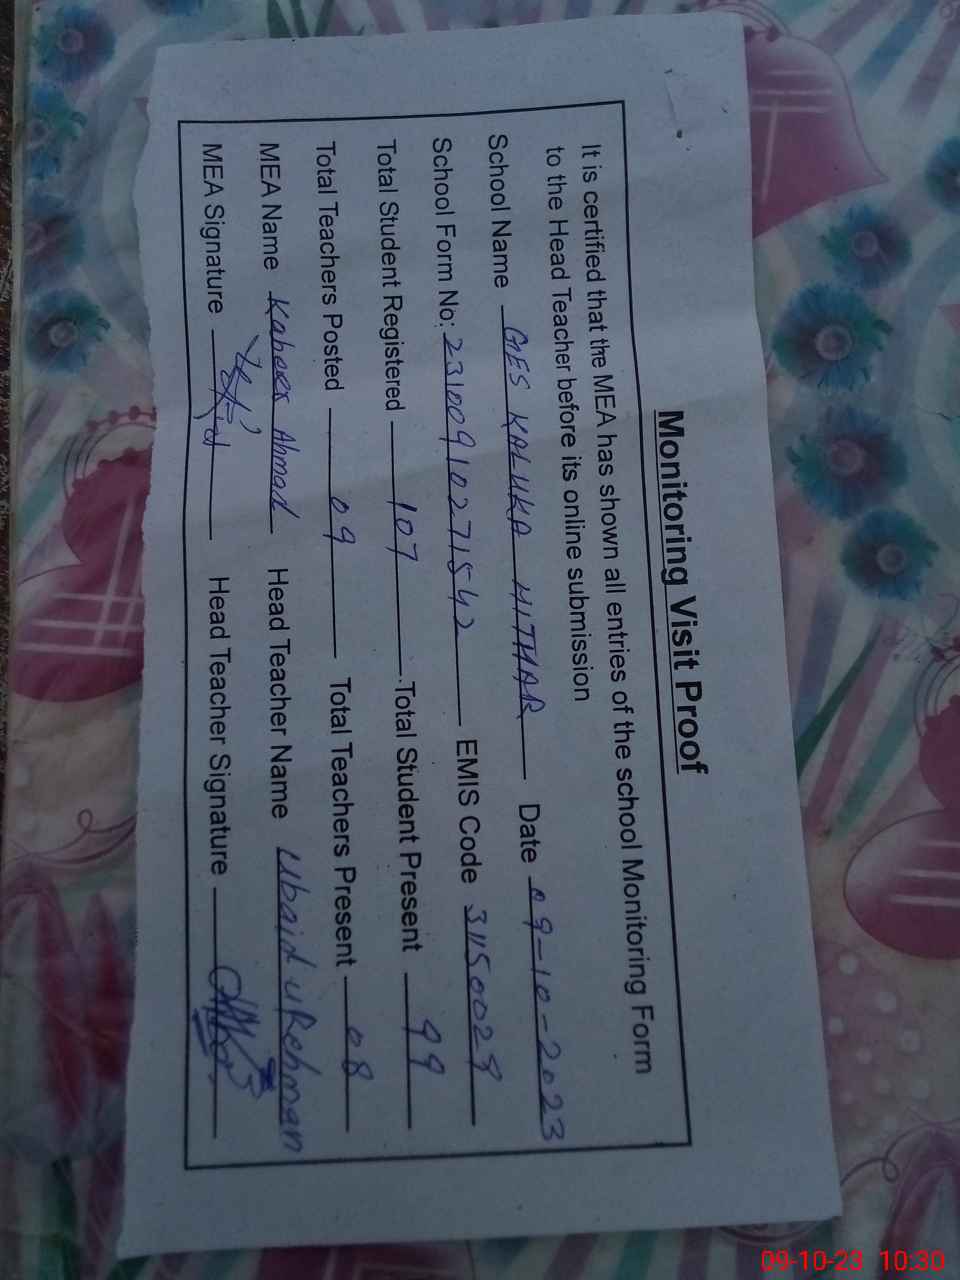 Monitoring Visit Proof
It is certified that the MEA has shown all entries of the school Monitoring Form
to the Head Teacher before its online submission
School Name GES KALUKA MITHAR Date 09-10-2023
School Form No: 23100910271542 EMIS Code 31150028
Total Student Registered 107 Total Student Present 99
Total Teachers Posted 09 Total Teachers Present 08
MEA Name Kabeer Ahmad Head Teacher Name Ubaid uRehman
MEA Signature Head Teacher Signature
09-10-23 10:30